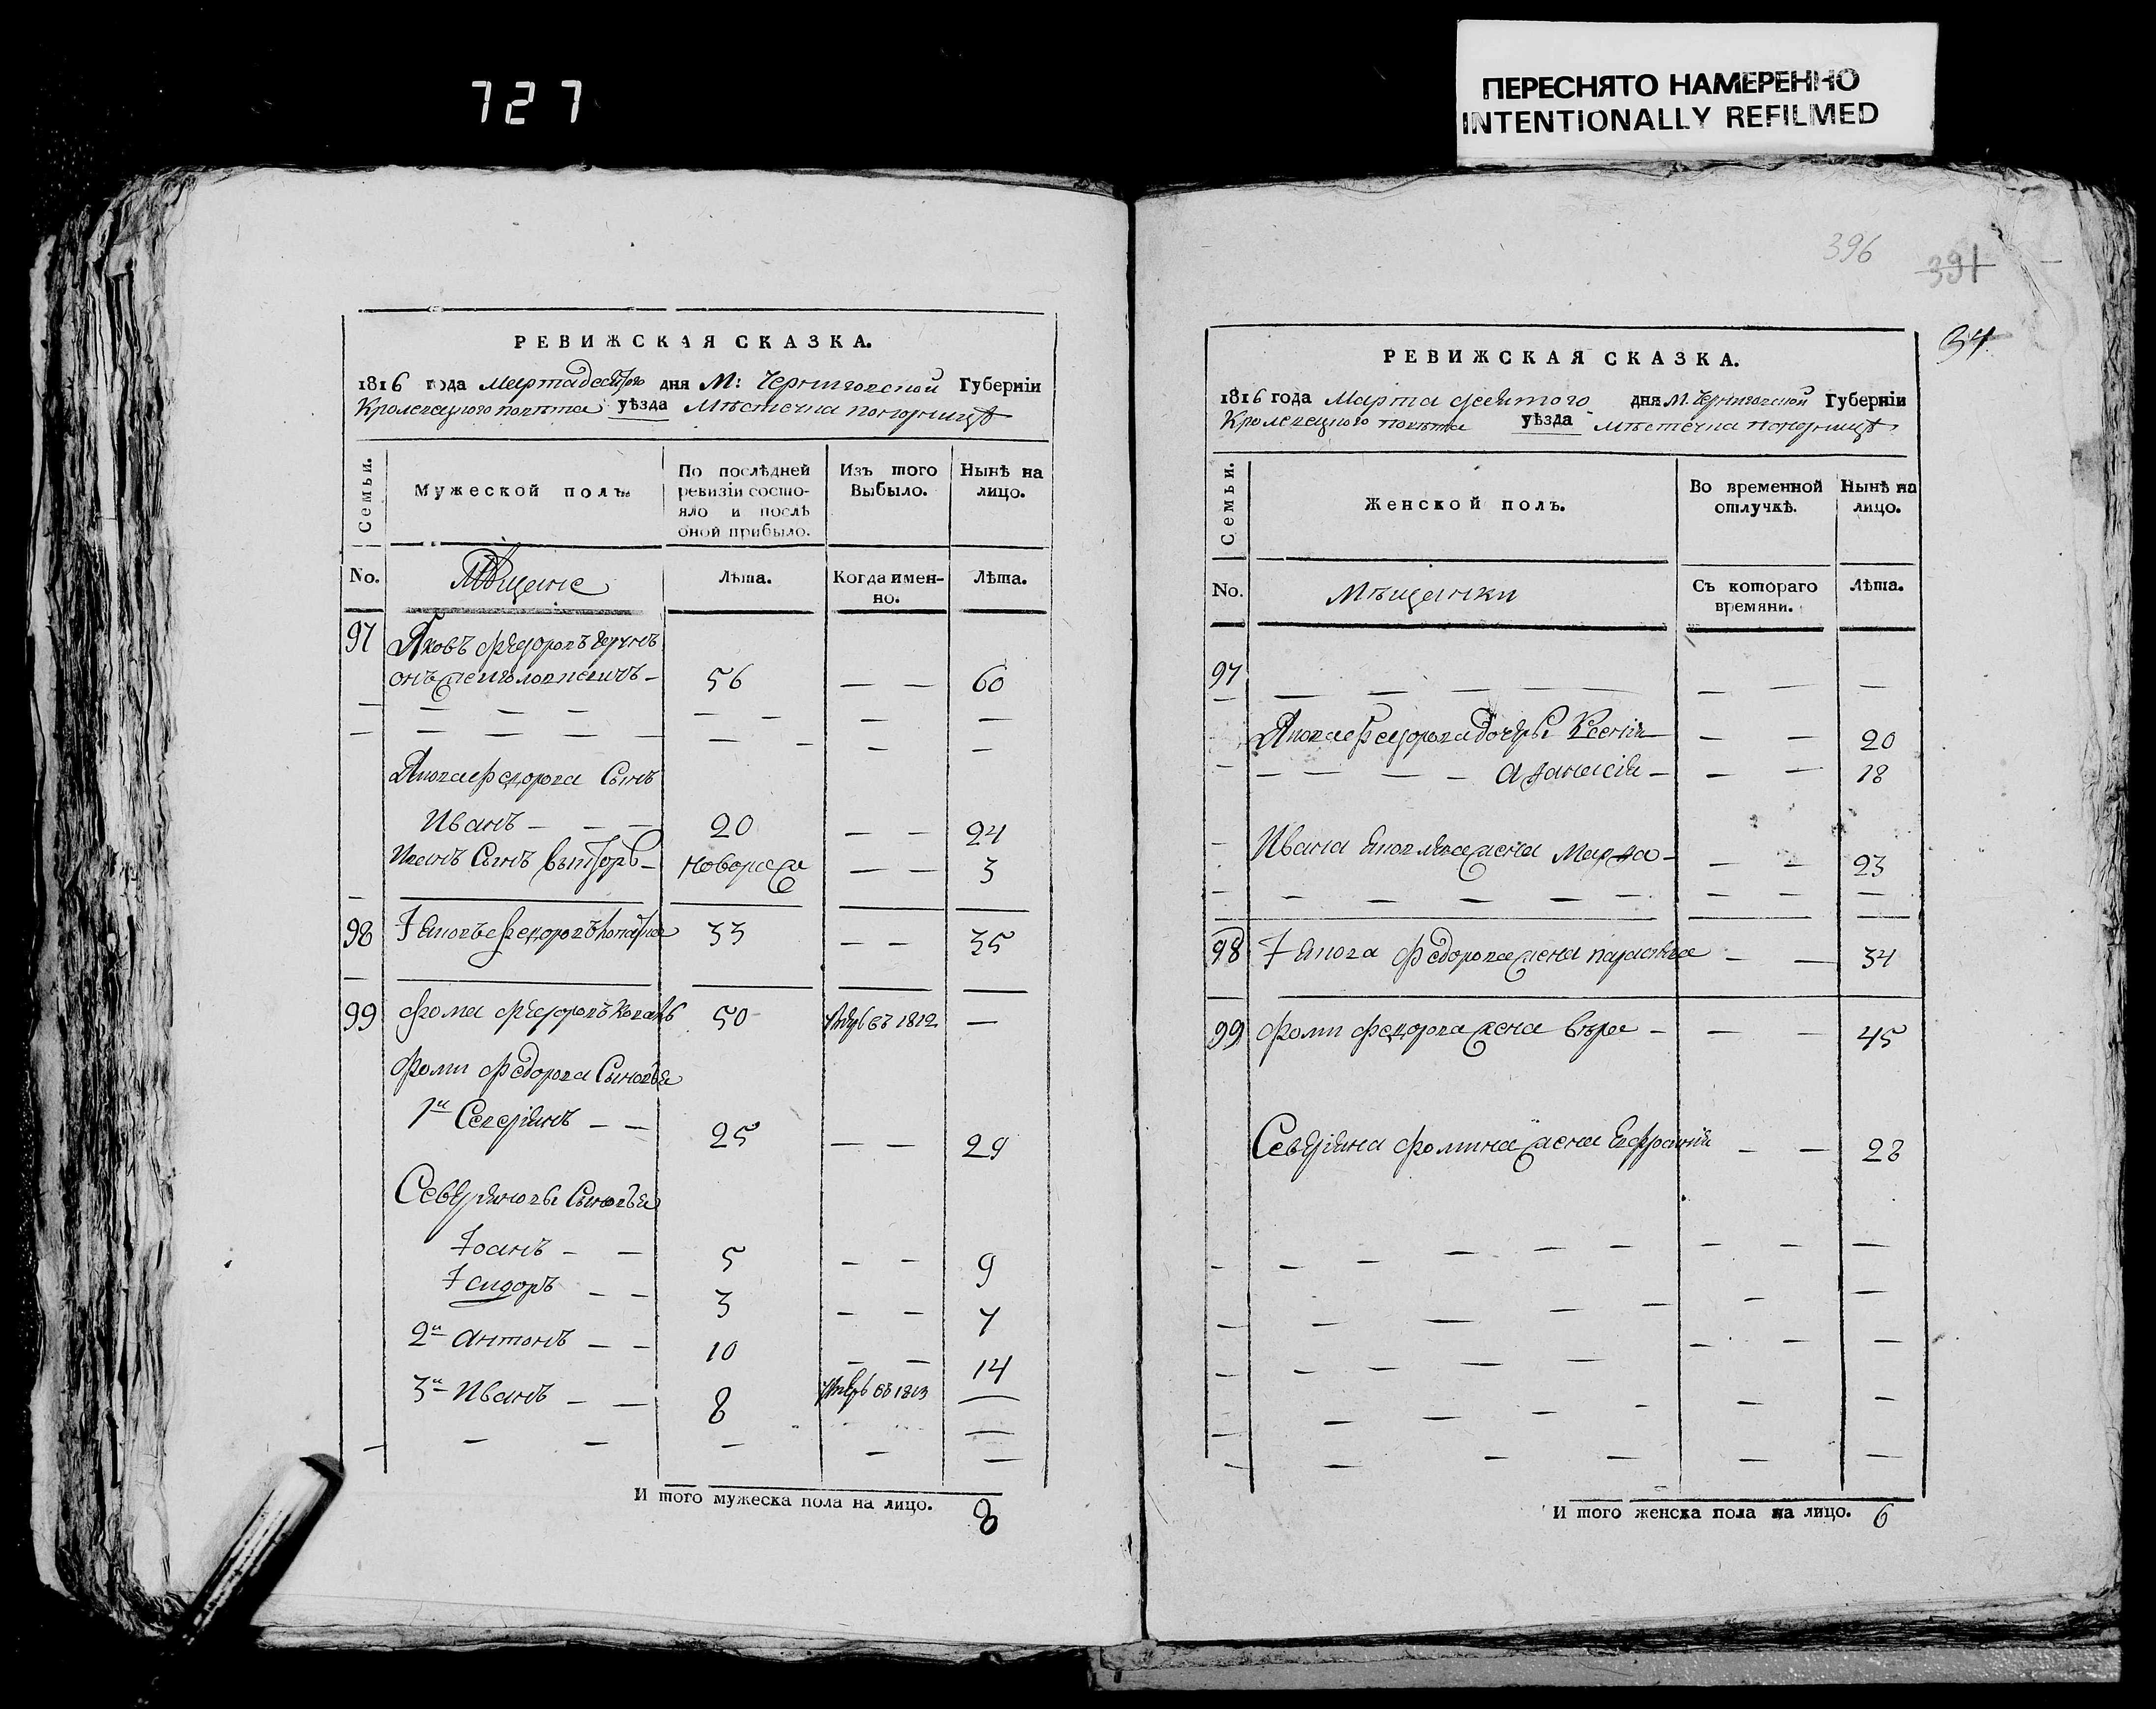 727
ПЕРЕСНЯТО НАМЕРЕННО
INTENTIONALLY REFILMED
РЕВИЖСКАЯ СКАЗКА.
1816 года Марта десятого дня М: Черниговской Губерніи
Кролевецкого повѣта уѣзда Мѣстечка Понорницѣ
Семьи.
Мужеской полъ.
По послѣдней ревизіи состо-
яло и послѣ
оной прибыло.
Изъ того
выбыло.
Нынѣ на
лицо.
No.
Мѣщане
Лѣта.
Когда имен-
но.
Лѣта.
97 Яковъ Федоровъ
56 — — 60
Якова Федорова Сынъ
Иванъ — — — 20 — — 24
— новорож — — 3
98 Яковъ Федоровъ 33 — — 35
99 Фома Федоровъ 50 въ 1812 —
Фоми Федорова Сыновья
1й Северіянъ — — 25 — — 29
Северіяновы Сыновья
Іоанъ — — 5 — — 9
Ісидоръ — — 3 — — 7
2й Антонъ — — 10 — — 14
3й Иванъ — — 8 въ 1813 —
И того мужеска пола на лицо. 8
396
391
34
РЕВИЖСКАЯ СКАЗКА.
1816 года Марта десятого дня М. Черниговской Губерніи
Кролевецкого повѣта уѣзда Мѣстечка Понорницѣ
Семьи.
Женской полъ.
Во временной
отлучкѣ.
Нынѣ на
лицо.
No.
Мѣщанки
Съ котораго
времяни.
Лѣта.
97
Якова Федорова Дочеры Ксенія — — 20
Афанасія — — — 18
Ивана Яковлева жена Марфа — — — 23
98 Якова Федорова жена Параскева — — 34
99 Фоми Федорова жена — — — 45
Севѣріяна Фомина жена Евфросинія — — 28
И того женска пола на лицо. 6